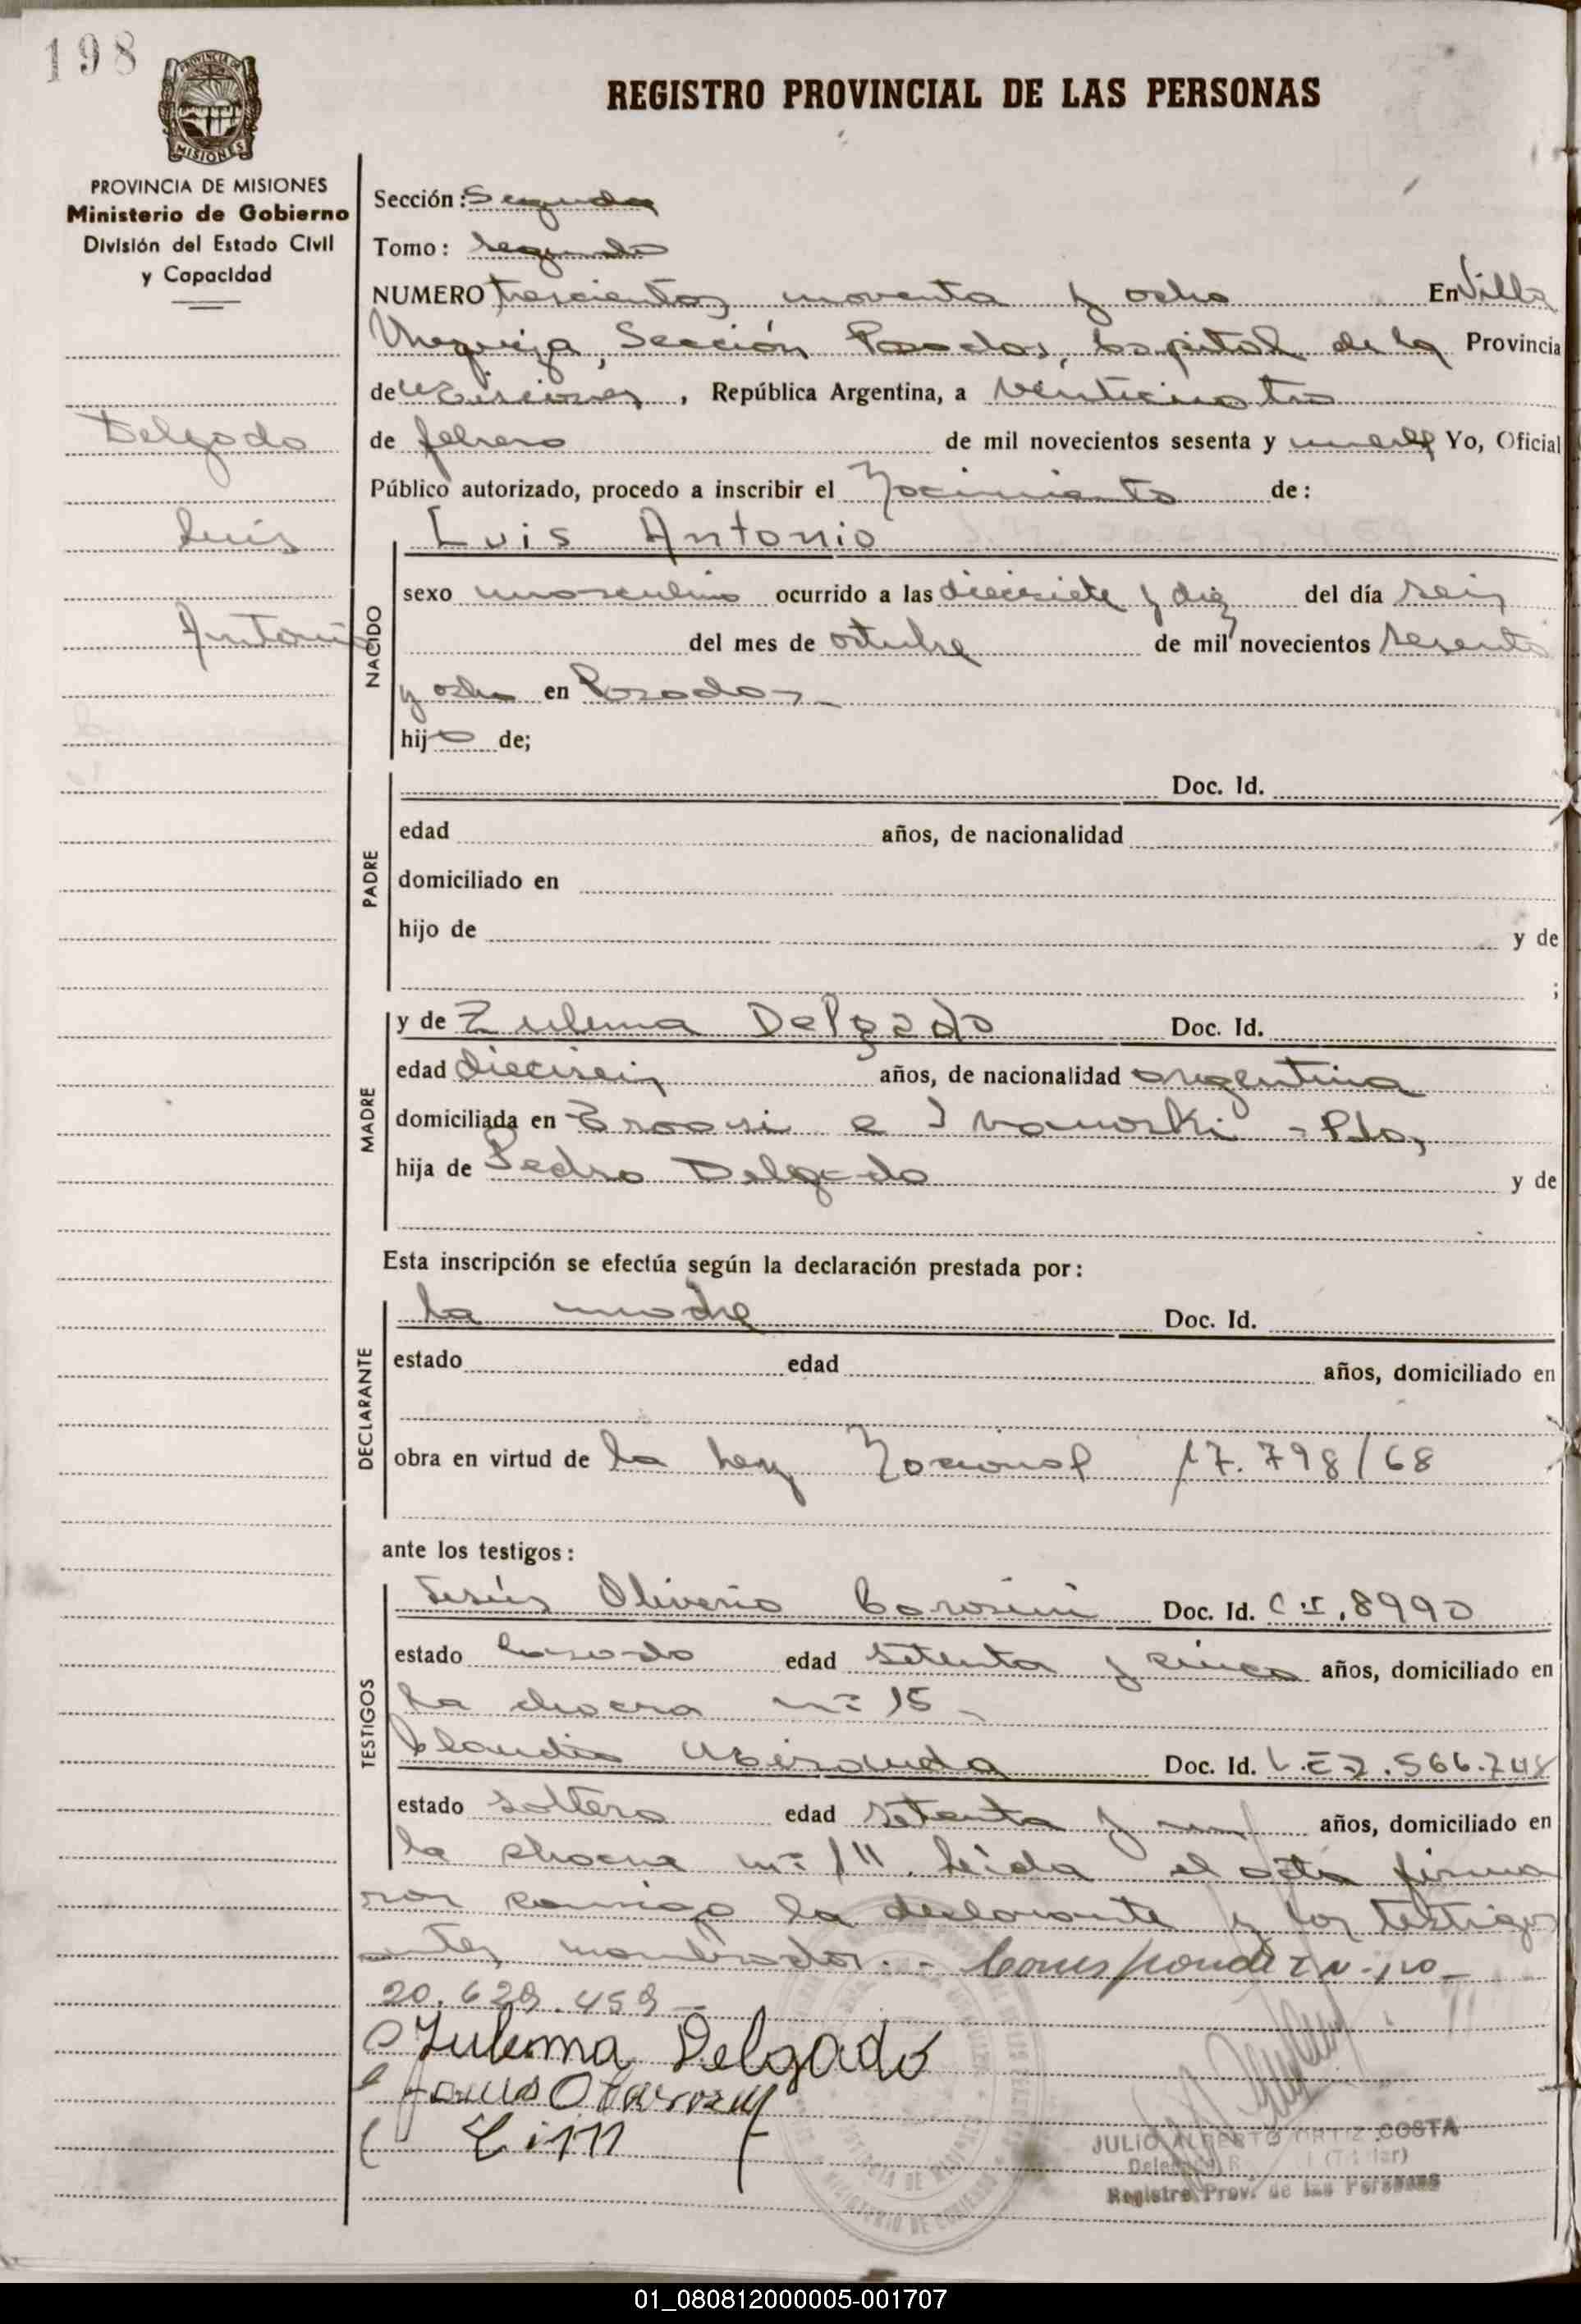 198
PROVINCIA DE MISIONES
MISIONES
PROVINCIA DE MISIONES
Ministerio de Gobierno
División del Estado Civil
y Capacidad
Delgado
Luis
Antonio
REGISTRO PROVINCIAL DE LAS PERSONAS
Sección: Segunda
Tomo: segundo
NUMERO trescientos noventa y ocho En Villa
Urquiza, Sección Posadas, capital de la Provincia
de Misiones, República Argentina, a veinticuatro
de febrero de mil novecientos sesenta y nueve Yo, Oficial
Público autorizado, procedo a inscribir el Nacimiento de:
Luis Antonio
NACIDO
sexo masculino ocurrido a las diecisiete y diez del día seis
del mes de octubre de mil novecientos sesenta
y ocho en Posadas
hijo de;
PADRE
Doc. Id.
edad años, de nacionalidad
domiciliado en
hijo de y de
;
MADRE
y de Zulema Delgado Doc. Id.
edad dieciseis años, de nacionalidad argentina
domiciliada en e Ivanowski - Pdas,
hija de Pedro Delgado y de
Esta inscripción se efectúa según la declaración prestada por:
DECLARANTE
la madre Doc. Id.
estado edad años, domiciliado en
obra en virtud de la Ley Nacional 17.798/68
ante los testigos:
TESTIGOS
Jesús Oliverio Doc. Id. C.I. 8990
estado casado edad setenta y cinco años, domiciliado en
la chacra nº 15
Claudio Miranda Doc. Id. L.E 2.566.748
estado soltero edad setenta y un años, domiciliado en
la chacra nº 111. Leída el acta firma
ron conmigo la declarante y los testigos
antes nombrados. - Corresponde I N-ijo
20.629.459
Zulema Delgado
JULIO ALBERTO ORTIZ COSTA
Registro Prov. de las Personas
01_080812000005-001707